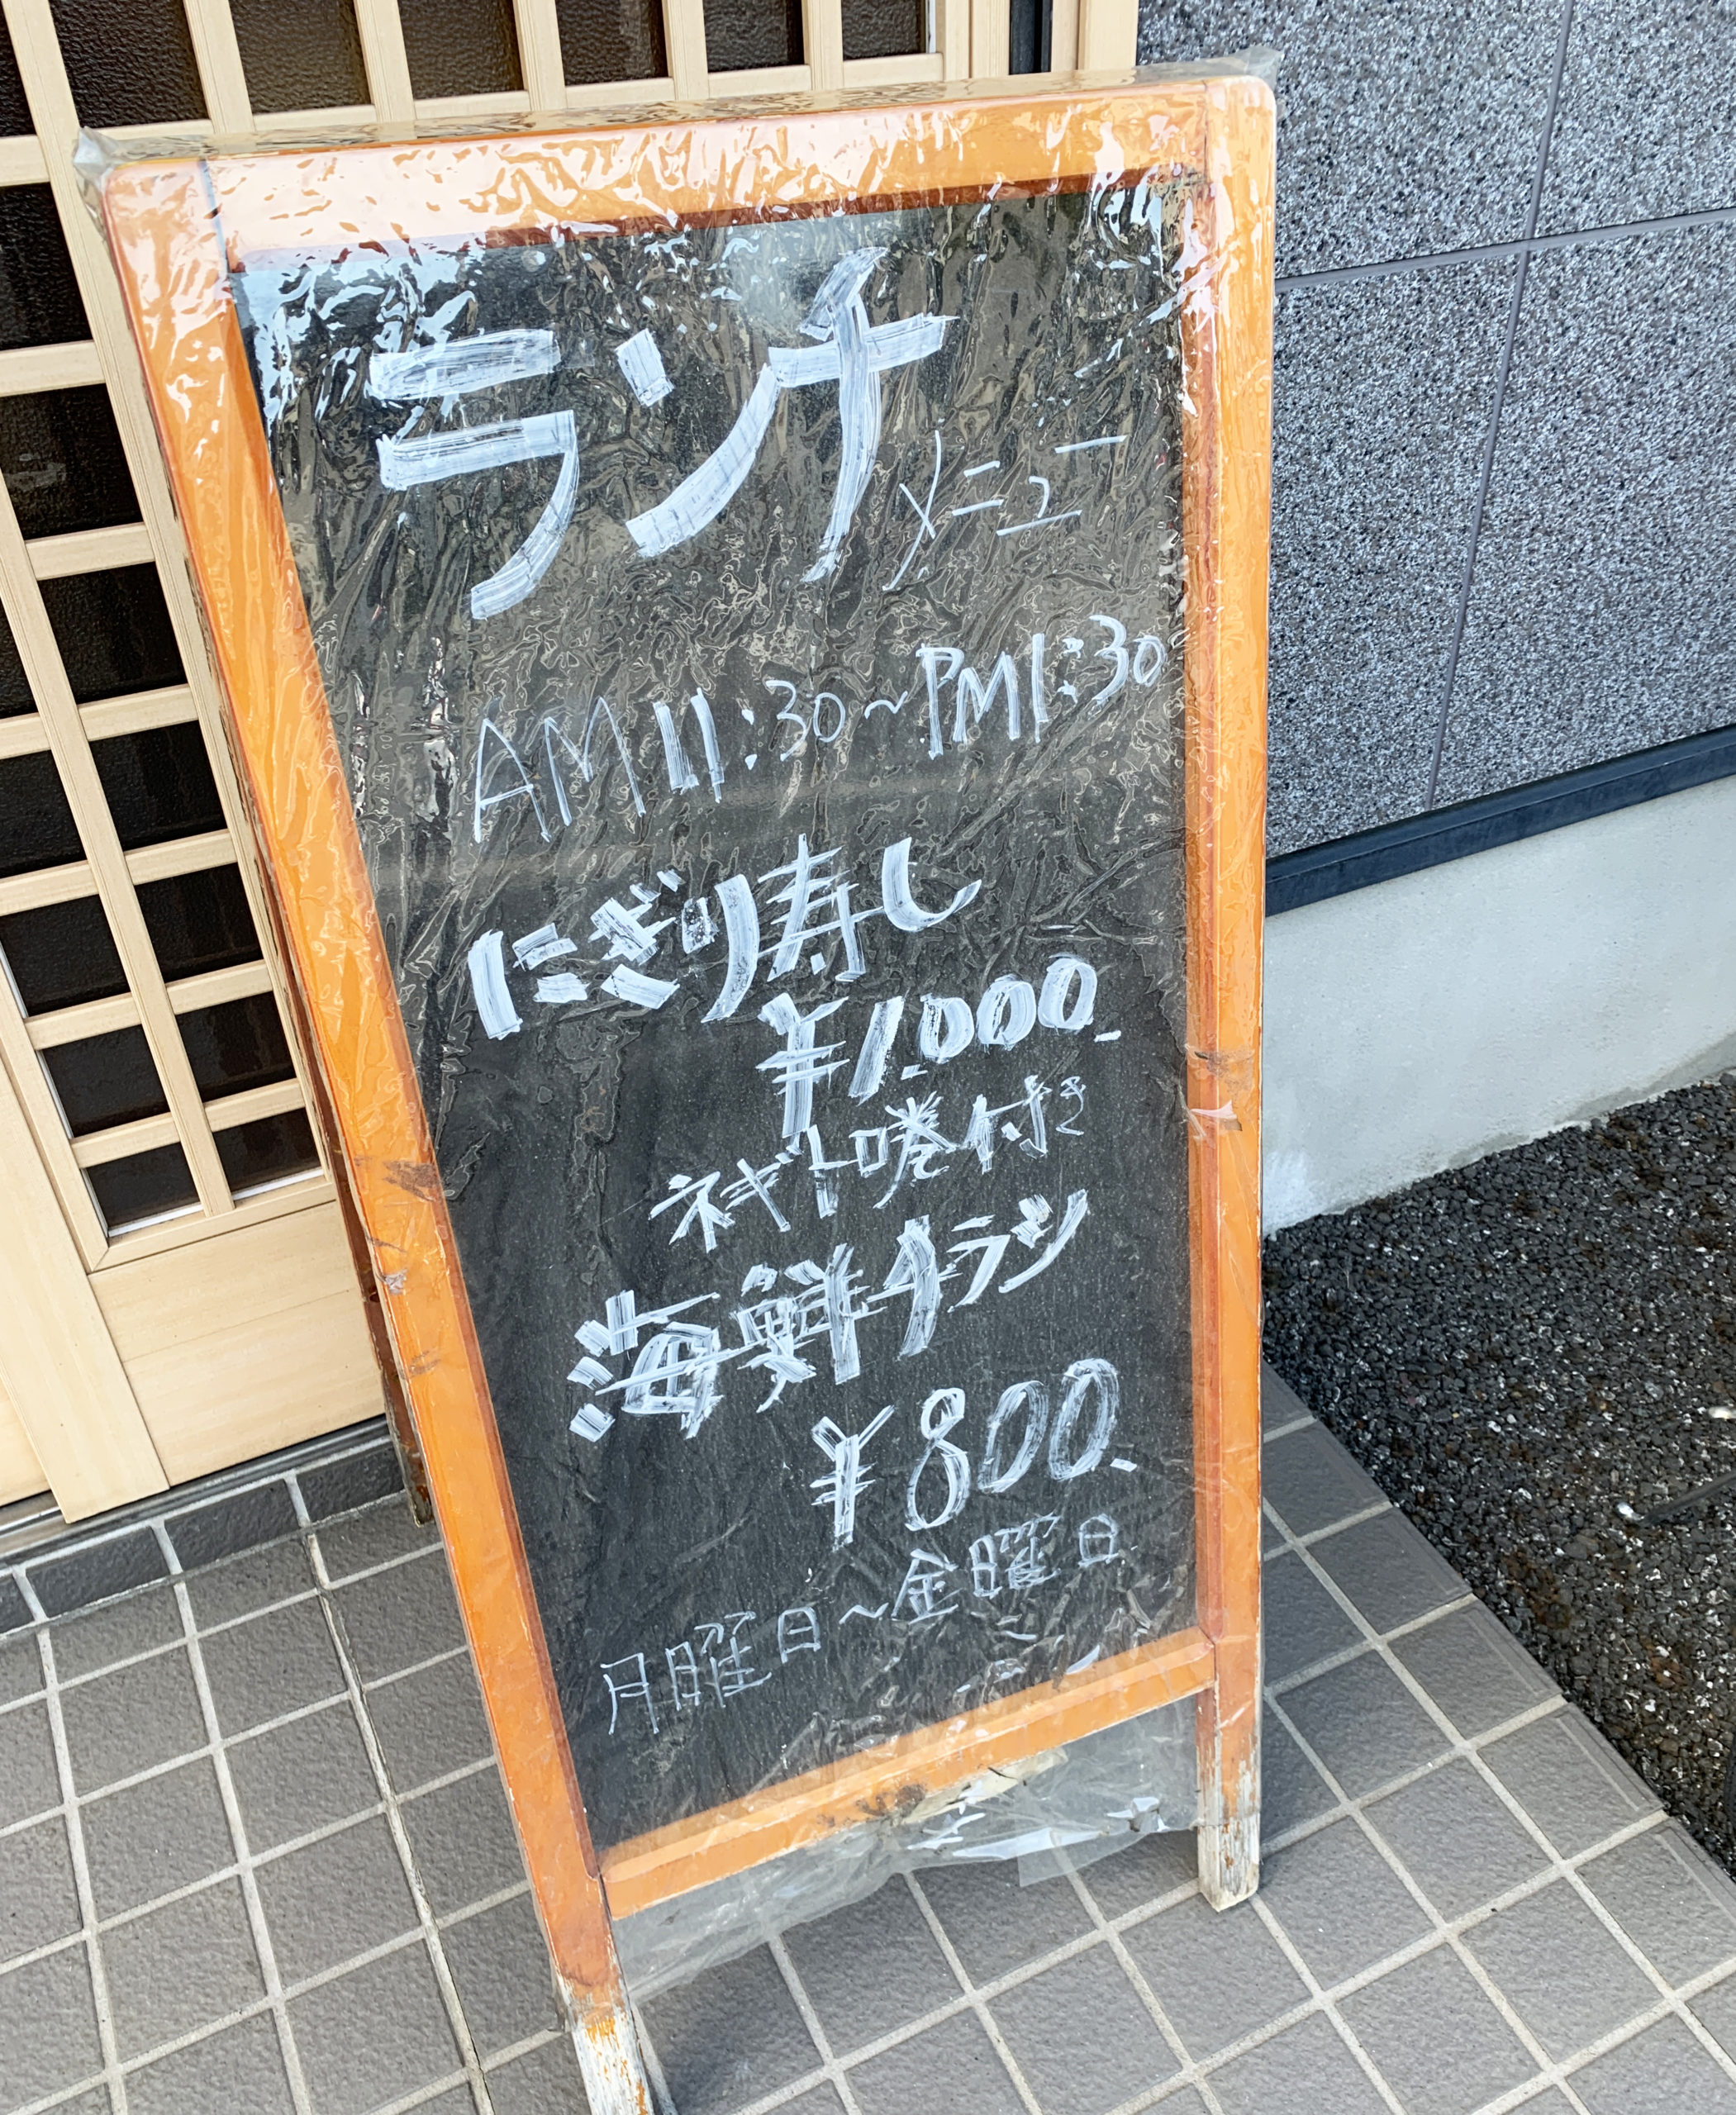 ランチ メニュー
AM11:30~PM1:30
にぎり寿し
¥1.000.
ネギトロ巻付き
海鮮チラシ
¥800.
月曜日~金曜日